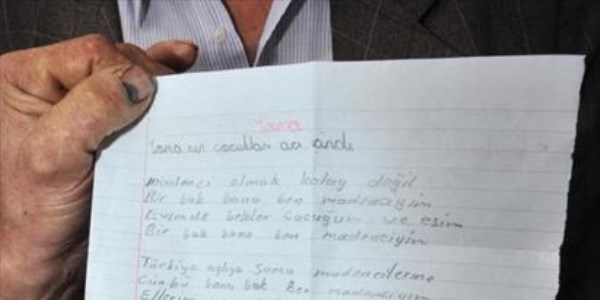 Soma
Soma nın çocukları acı içinde
Madenci olmak kolay değil
Bir bak bana ben madenciyim
Evimde bekler çocuğum ve eşim
Bir bak bana ben madenciyim
Türkiye ağlıyo Soma madencilerine
Çünkü bana bak Ben madenciyim
Ellerim